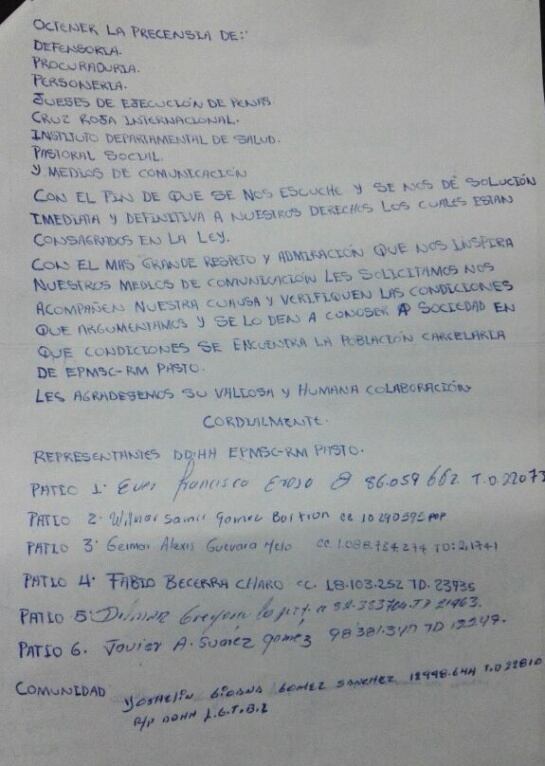 OCTENER LA PRECENSIA DE:
DEFENSORIA.
PROCURADURIA.
PERSONERIA.
JUESES DE EJECUCIÓN DE PENAS
CRUZ ROJA INTERNACIONAL.
INSTITUTO DEPARTAMENTAL DE SALUD.
PASTORAL SOCIAL.
Y MEDIOS DE COMUNICACIÓN
CON EL FIN DE QUE SE NOS ESCUCHE Y SE NOS DÉ SOLUCIÓN
IMEDIATA Y DEFINITIVA A NUESTROS DERECHOS LOS CUALES ESTAN
CONSAGRADOS EN LA LEY.
CON EL MAS GRANDE RESPETO Y ADMIRACIÓN QUE NOS INSPIRA
NUESTROS MEDIOS DE COMUNICACIÓN LES SOLICITAMOS NOS
ACOMPAÑEN NUESTRA CUAUSA Y VERIFIQUEN LAS CONDICIONES
QUE ARGUMENTAMOS Y SE LO DEN A CONOSER A SOCIEDAD EN
QUE CONDICIONES SE ENCUENTRA LA POBLACIÓN CARCELARIA
DE EPMSC-RM PASTO.
LES AGRADESEMOS SU VALIOSA Y HUMANA COLABORACIÓN
CORDIALMENTE.
REPRESENTANTES DD.HH EPMSC-RM PASTO.
PATIO 1. Francisco 86.059 662 T.D.22073
PATIO 2. Wilmar Samir Gomez cc 10290595 POP
PATIO 3. Geimar Alexis Guevara Melo CC. 1.088.734274 TD: 21741
PATIO 4. FABIO BECERRA CHARO CC. 18.103.252 TD. 23935
PATIO 5. TD 21463.
PATIO 6. Javier A. Suarez gomez 98381.347 TD 12249.
COMUNIDAD GOMEZ SANCHEZ T.D 22810
R/P DDHH L.G.T.B.I